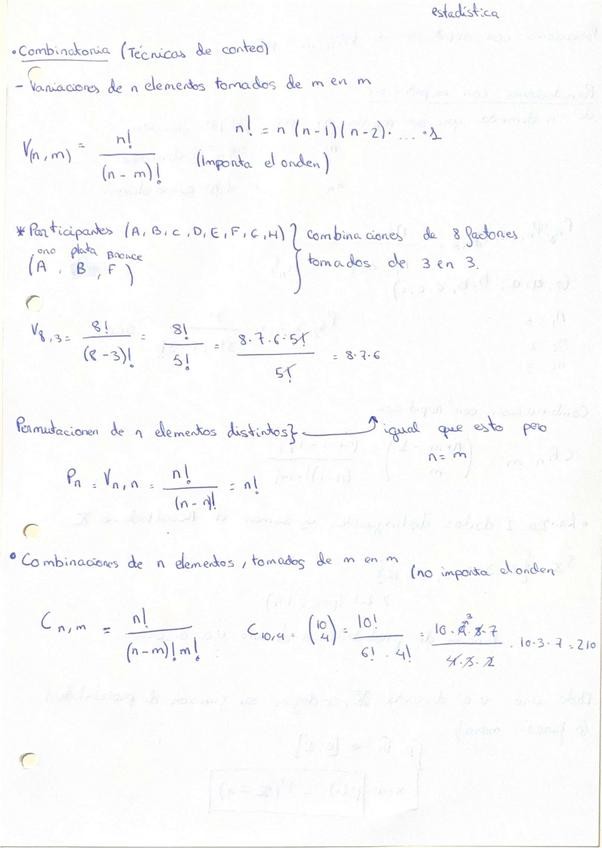 estadística
• Combinatoria (Técnicas de conteo)
- Variaciones de n elementos tomados de m en m
V(n,m) = n! / (n-m)! (Importa el orden) n! = n (n-1) (n-2) · ... · 1
* Participantes (A, B, C, D, E, F, G, H) } combinaciones de 8 factores
oro plata Bronce
(A, B, F) tomados de 3 en 3.
V8,3 = 8! / (8-3)! = 8! / 5! = 8·7·6·5! / 5! = 8·7·6
Permutaciones de n elementos distintos} → igual que esto pero
n = m
Pn = Vn,n = n! / (n-n)! = n!
• Combinaciones de n elementos, tomados de m en m (no importa el orden
Cn,m = n! / (n-m)! m! C10,4 = (10 4) = 10! / 6! · 4! = 10·9·8·7 / 4·3·2 · 10·3·7 = 210